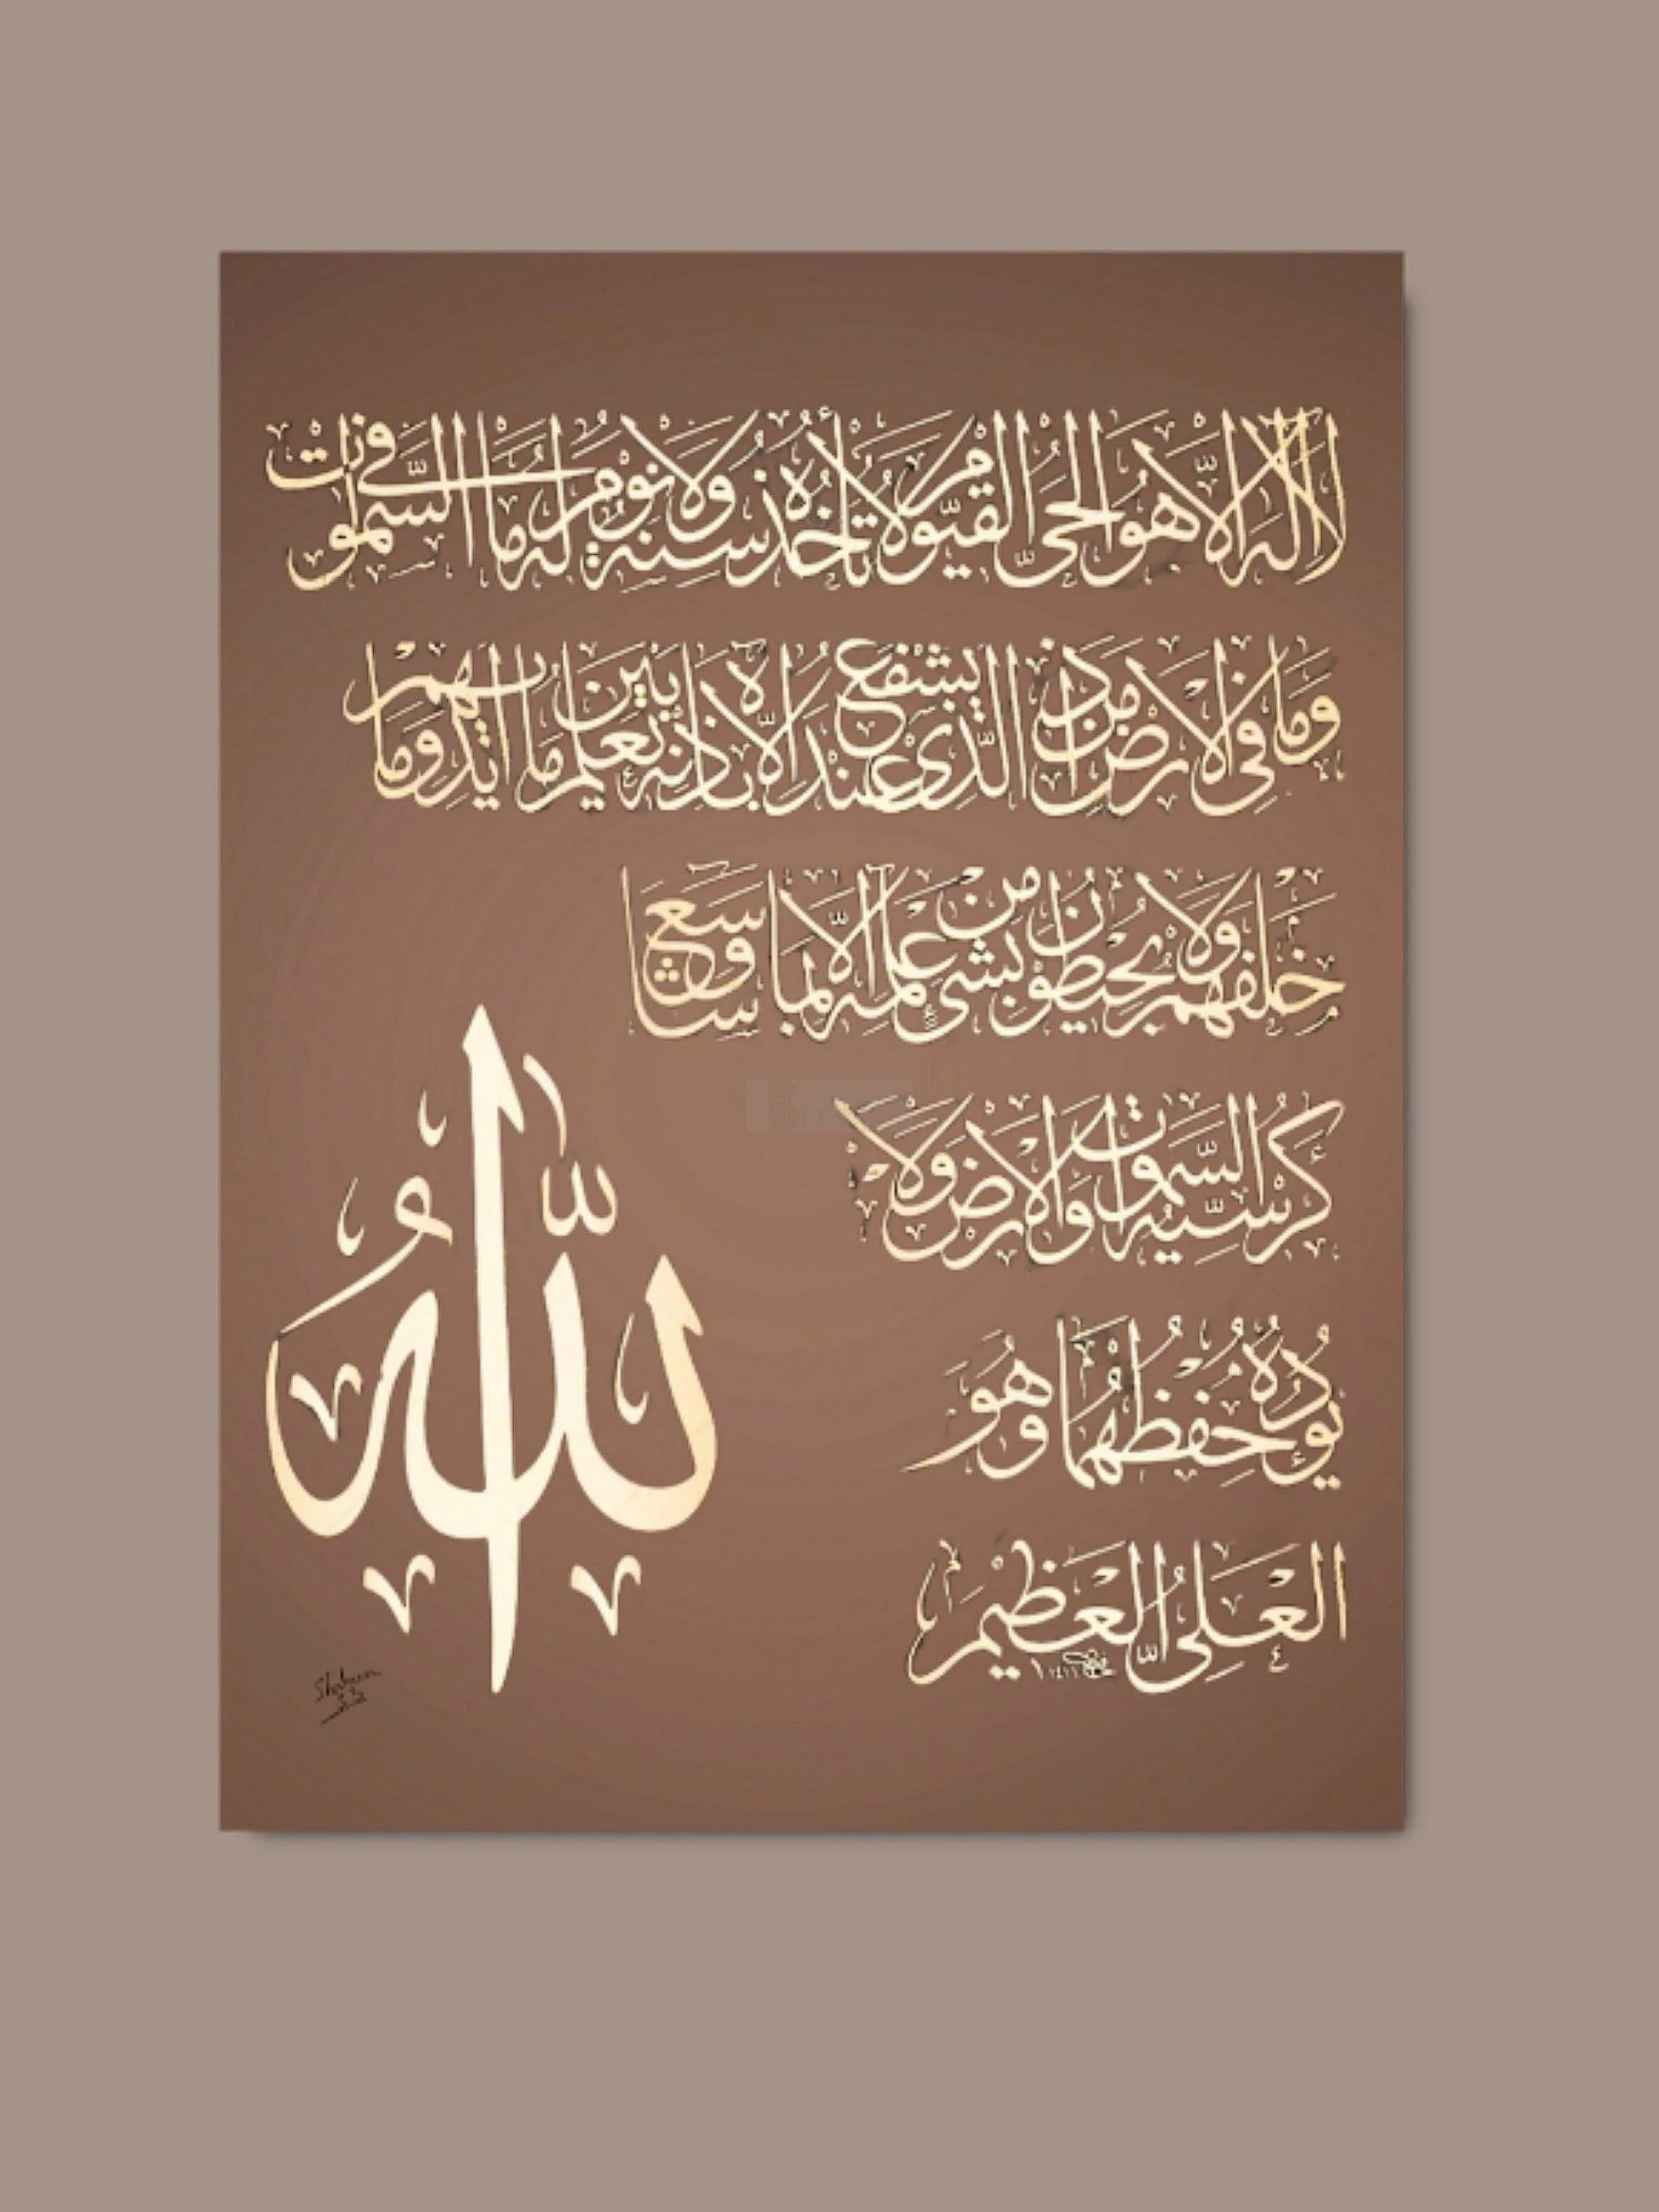 لَا إِلٰهَ إِلَّا هُوَ الْحَيُّ الْقَيُّومُ لَا تَأْخُذُهُ سِنَةٌ وَلَا نَوْمٌ لَهُ مَا فِي السَّمٰوَاتِ
وَمَا فِي الْأَرْضِ مَنْ ذَا الَّذِي يَشْفَعُ عِنْدَهُ إِلَّا بِإِذْنِهِ يَعْلَمُ مَا بَيْنَ أَيْدِيهِمْ وَمَا
خَلْفَهُمْ وَلَا يُحِيطُونَ بِشَيْءٍ مِنْ عِلْمِهِ إِلَّا بِمَا شَاءَ وَسِعَ
كُرْسِيُّهُ السَّمٰوَاتِ وَالْأَرْضَ وَلَا
يَئُودُهُ حِفْظُهُمَا وَهُوَ
الْعَلِيُّ الْعَظِيمُ
اللّٰهُ